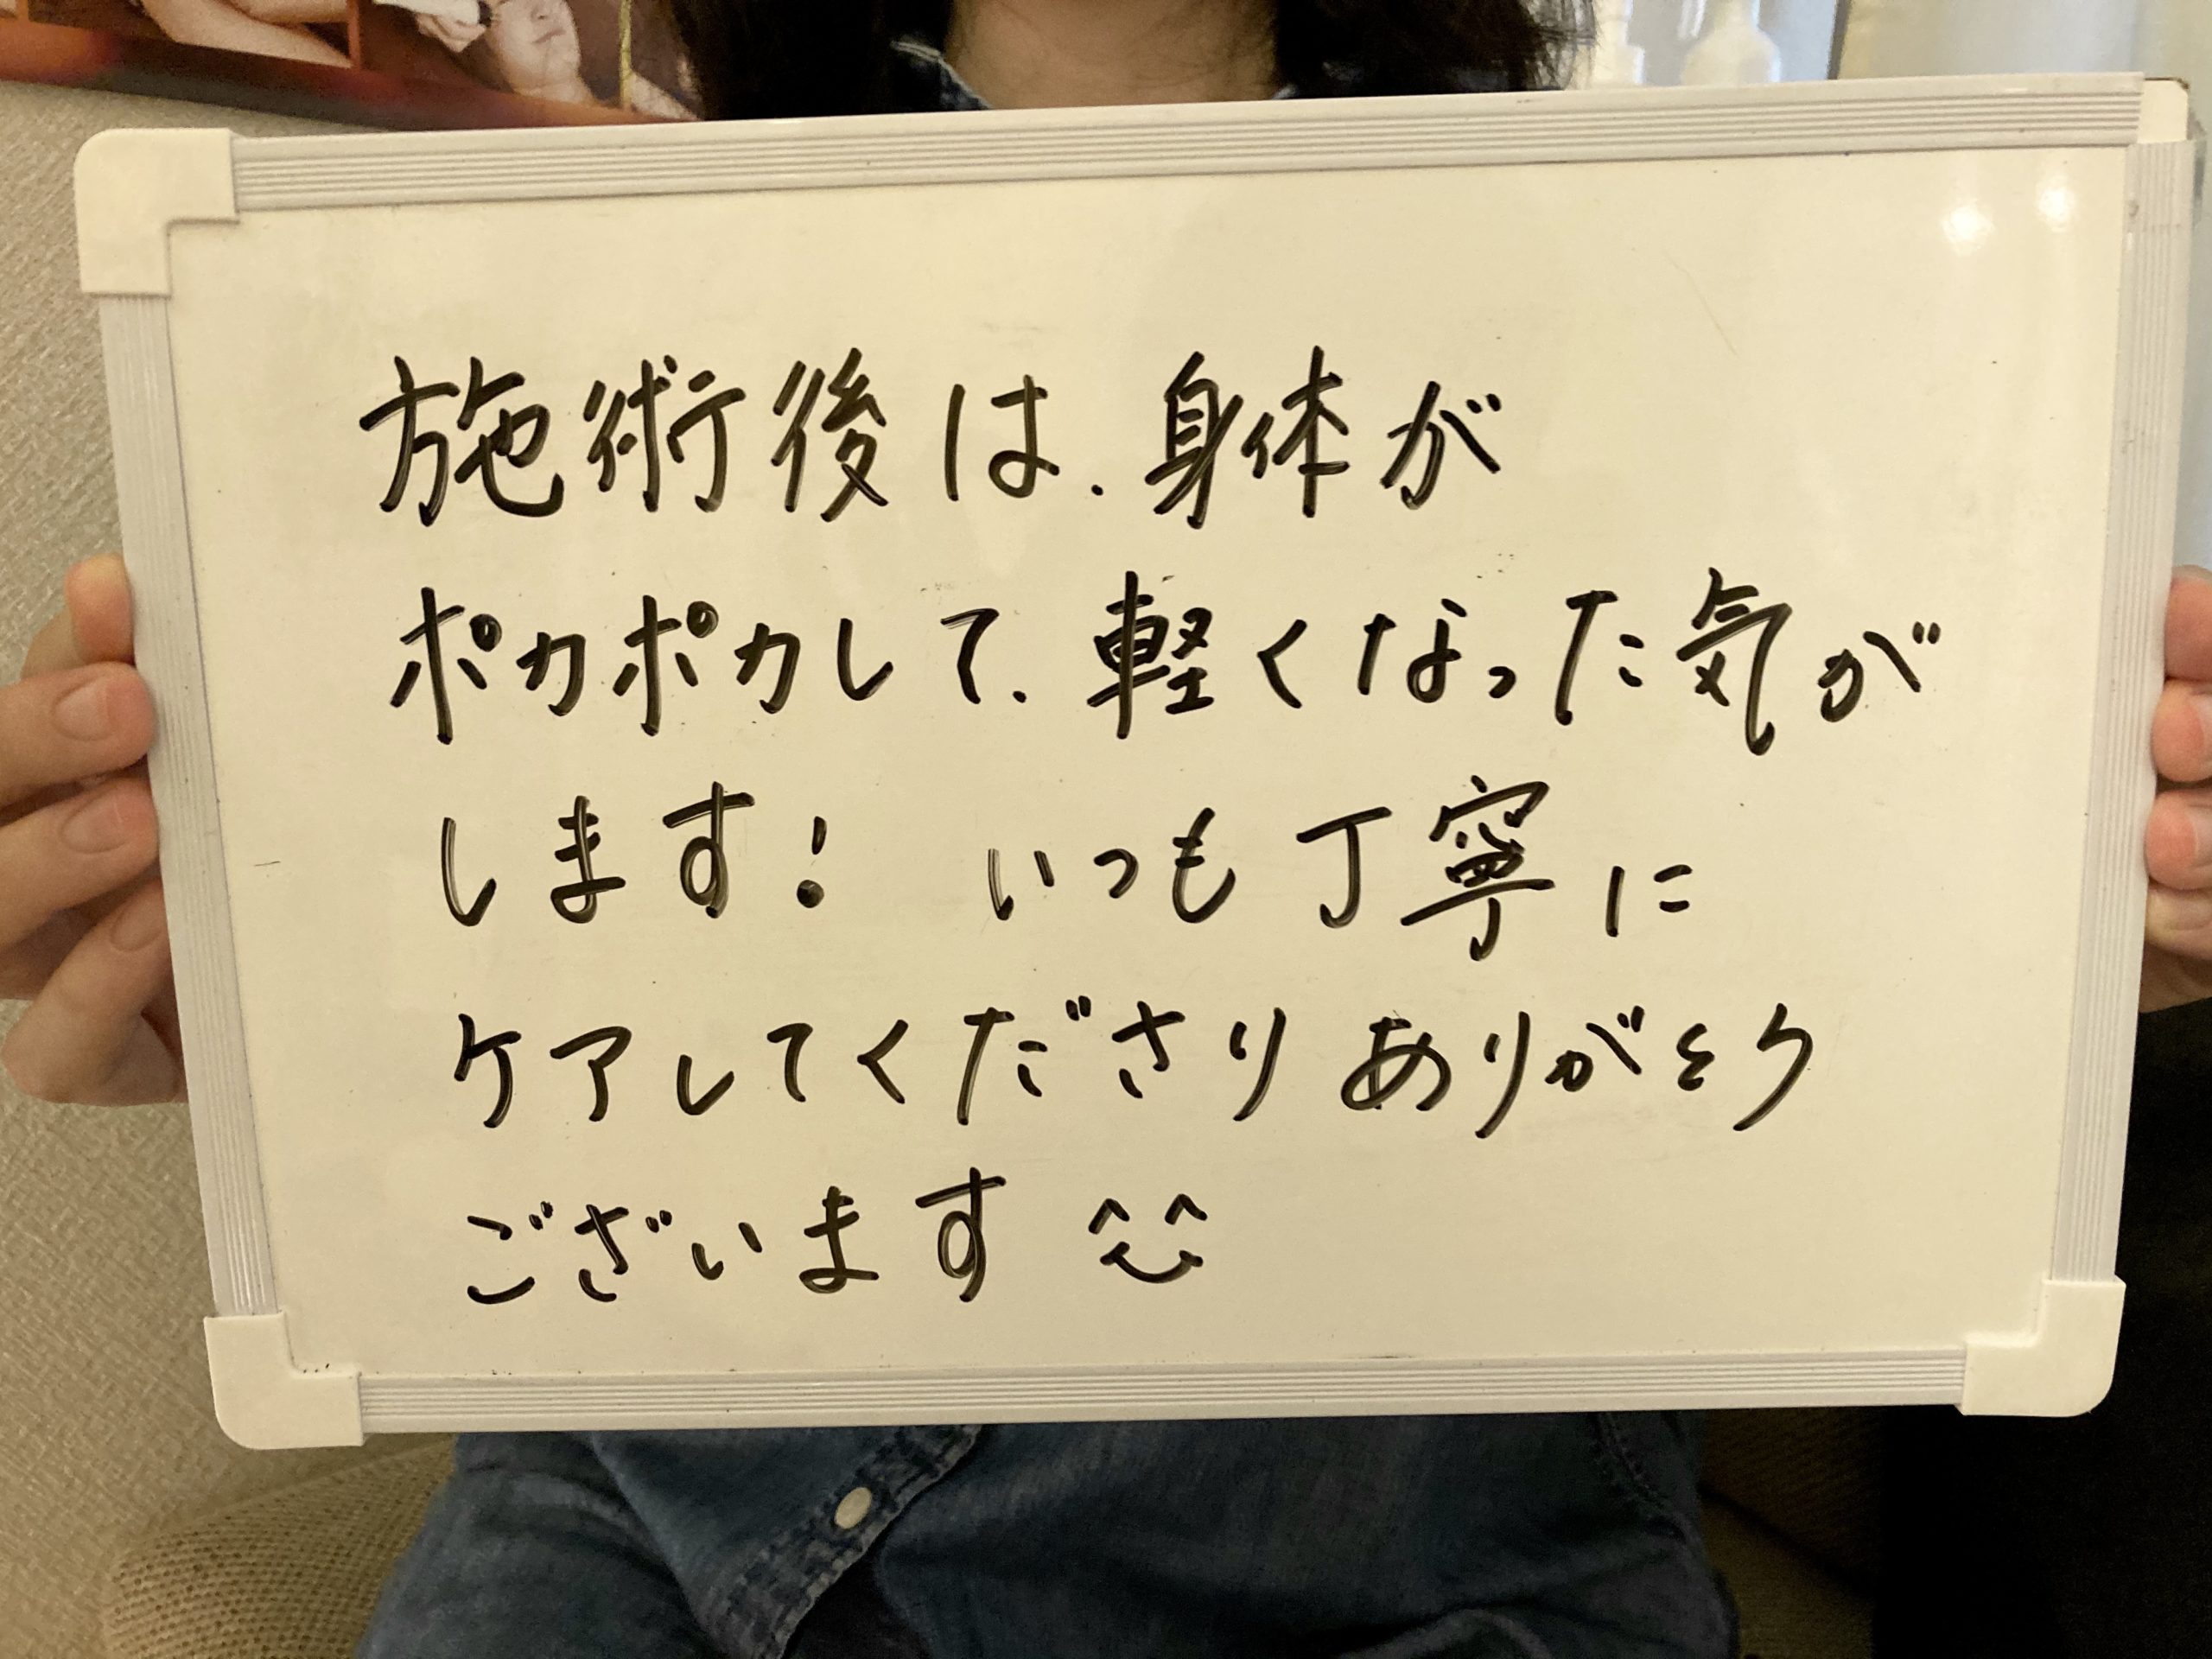 施術後は、身体が
ポカポカして、軽くなった気が
します! いつも丁寧に
ケアしてくださりありがとう
ございます ^^